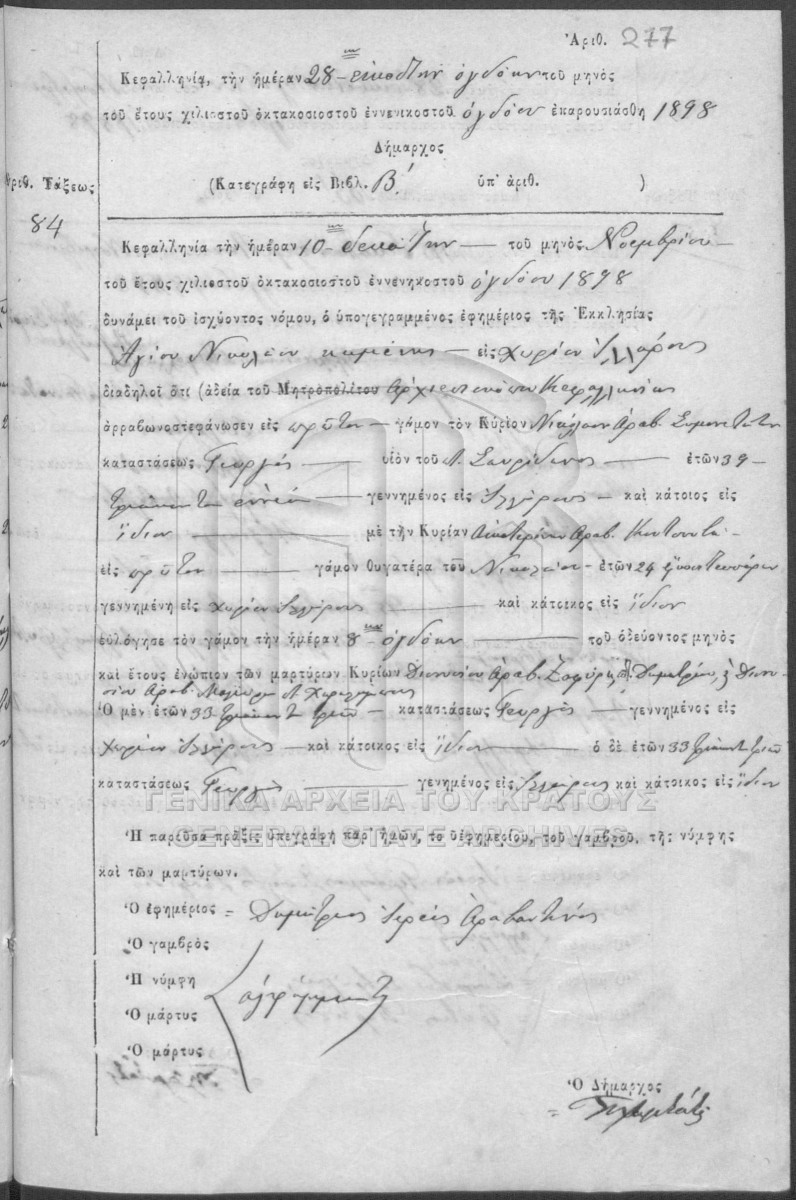 Ἀριθ. 277
Κεφαλληνία, τὴν ἡμέραν 28 - εἰκοστὴν ὀγδόην τοῦ μηνὸς
τοῦ ἔτους χιλιοστοῦ ὀκτακοσιοστοῦ ἐννενικοστοῦ ὀγδόου ἐπαρουσιάσθη 1898
Δήμαρχος
Ἀριθ. Τάξεως
(Κατεγράφη εἰς Βιβλ. Β΄. ὑπ' ἀριθ. )
84
Κεφαλληνία τὴν ἡμέραν 10 - δεκάτην — τοῦ μηνὸς Νοεμβρίου —
τοῦ ἔτους χιλιοστοῦ ὀκτακοσιοστοῦ ἐννενηκοστοῦ ὀγδόου 1898
δυνάμει τοῦ ἰσχύοντος νόμου, ὁ ὑπογεγραμμένος ἐφημέριος τῆς Ἐκκλησίας
Ἁγίου Νικολάου — εἰς χωρίον
διαδηλοῖ ὅτι (ἀδεία τοῦ Μητροπολίτου Ἀρχιεπισκόπου Κεφαλληνίας
ἀρραβωνοστεφάνωσεν εἰς πρῶτον — γάμον τὸν Κύριον Νικόλαον Ἀραβ.
καταστάσεως Γεωργὸς — υἱὸν τοῦ Σπυρίδωνος — ἐτῶν 39 -
τριάκοντα ἐννέα — γεννημένος εἰς — καὶ κάτοιος εἰς
ἴδιον — μὲ τὴν Κυρίαν Αἰκατερίναν Ἀραβ.
εἰς πρῶτον — γάμον θυγατέρα τοῦ Νικολάου - ἐτῶν 24 εἴκοσι τεσσάρων
γεννημένη εἰς χωρίον — καὶ κάτοικος εἰς ἴδιον
εὐλόγησε τὸν γάμον τὴν ἡμέραν 8 - ὀγδόην — τοῦ ὁδεύοντος μηνὸς
καὶ ἔτους ἐνώπιον τῶν μαρτύρων Κυρίων Διονυσίου Ἀραβ. Δημητρίου, & Διονυ-
σίου Ἀραβ.
Ὁ μὲν ἐτῶν 33 τριάκοντα τριῶν — καταστάσεως Γεωργὸς — γεννημένος εἰς
χωρίον — καὶ κάτοικος εἰς ἴδιον — ὁ δὲ ἐτῶν 33 τριάκοντα τριῶν
καταστάσεως Γεωργὸς — γενημένος εἰς καὶ κάτοικος εἰς ἴδιον
ΓΕΝΙΚΑ ΑΡΧΕΙΑ ΤΟΥ ΚΡΑΤΟΥΣ
GENERAL STATE ARCHIVES
Ἡ παροῦσα πρᾶξις ὑπεγράφη παρ' ἡμῶν, το ῦἐφημερίου, τοῦ γαμβροῦ, τῆς νύμφης
καὶ τῶν μαρτύρων.
Ὁ ἐφημέριος = Δημήτριος Ἱερεὺς Ἀραβαντινός
Ὁ γαμβρὸς
Ἡ νύμφη
ἀγράμματοι
Ὁ μάρτυς
Ὁ μάρτυς
Ὁ Δήμαρχος